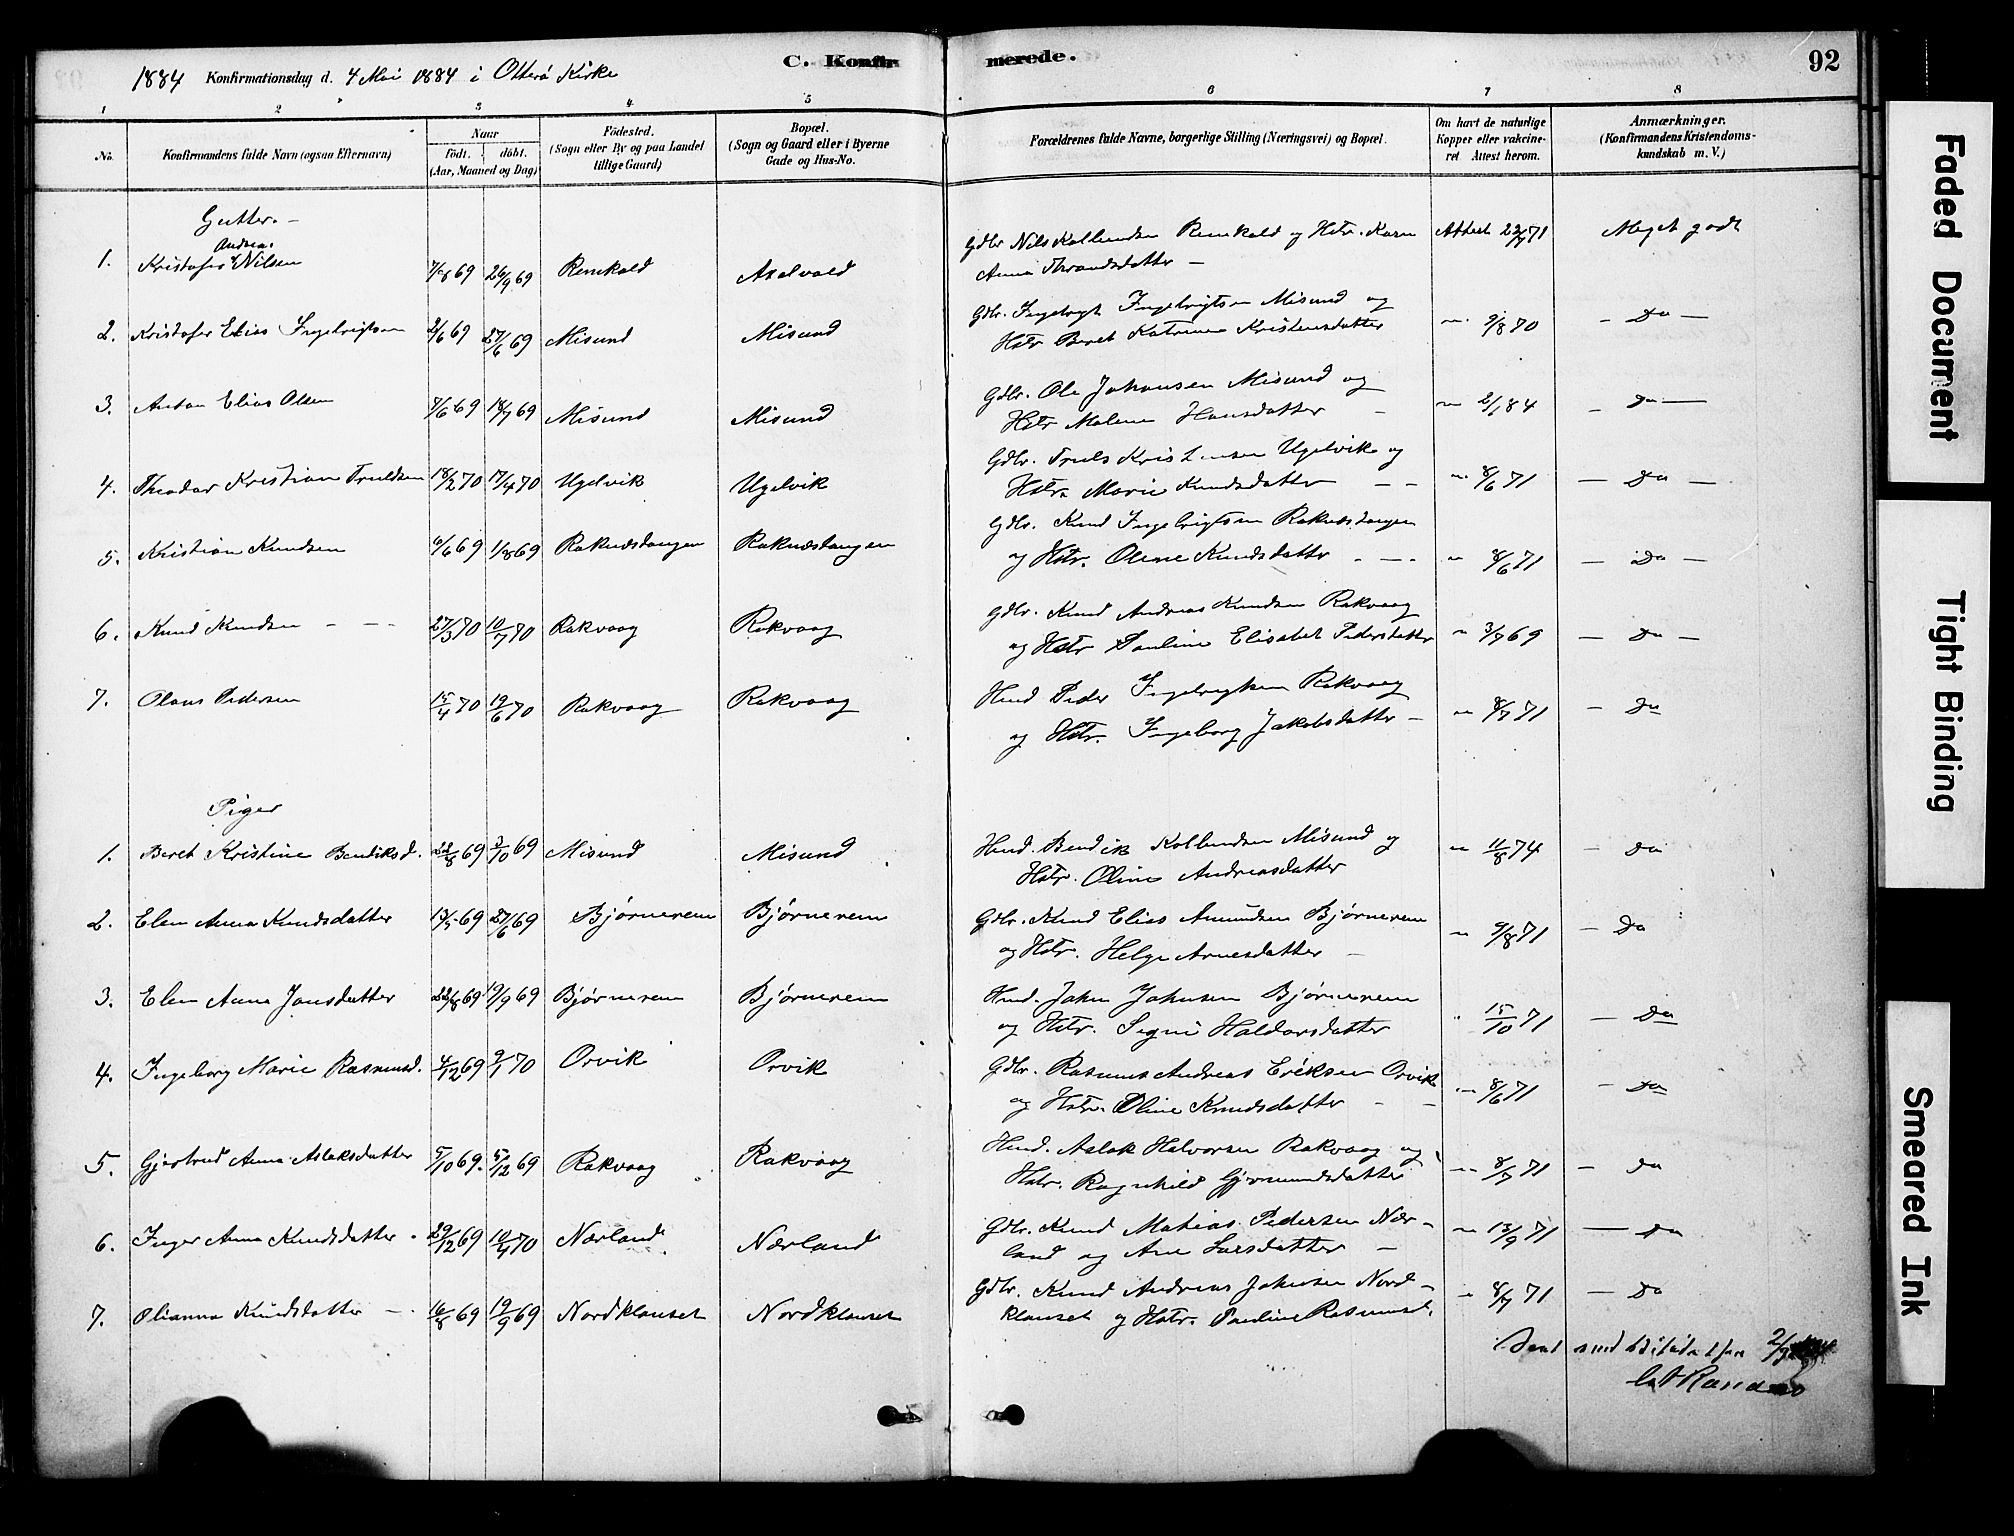 1884 Konfirmationsdag d. 4 Mai 1884 i Otterö Kirke
C. Konfirmerede.
92
1 2 3 4 5 6 7 8
No.
Konfirmandens fulde Navn (ogsaa Efternavn)
Naar
födt. döbt.
(Aar, Maaned og Dag)
Födested.
(Sogn eller By og paa Landet
tillige Gaard)
Bopæl.
(Sogn og Gaard eller i Byerne
Gade og Hus-No.
Forældrenes fulde Navne, borgerlige Stilling (Næringsvei) og Bopæl.
Om havt de naturlige
Kopper eller vakcine-
ret Attest herom.
Anmærkninger.
(Konfirmandens Kristendoms-
kundskab m. V.)
Gutter. -
Andrea.
1. Kristofer Nilsen 7/8 69 26/9 69 Renskald Axelvold
Gdbr Nils Kollundsen Renskald og Hstr. Karn Attest 71 Meget godt
Anna Thrandsdatter -
2. Kristofer Elias Ingebrigtsen 2/6 69 27/6 69 Misund Misund
Gdbr. Ingebrigt Ingebrigtsen Misund og
Hstr Beret Katrina Kristensdatter 9/8 70 - Do -
3. Anton Elias Olsen 7/6 69 18/7 69 Misund Misund
Gdbr. Ole Johansen Misund og
Hstr Malene Hansdatter - 2/1 84 - Do -
4. Theodor Kristian Truldsen 18/2 70 17/4 70 Ugelvik Ugelvik
Gdbr. Truls Kristensen Ugelvik og
Hstr. Marie Knudsdatter - - 8/6 71 - Do -
5. Kristian Knudsen 6/6 69 1/8 69 Raknestangen Raknestangen
Gdbr. Knud Ingebrigtsen Raknestangen
og Hstr. Olene Knudsdatter 8/6 71 - Do -
6. Knud Knudsen - - 27/3 70 10/7 70 Rakvaag Rakvaag
Gdbr. Knud Andreas Knudsen Rakvaag
og Hstr Pauline Elisabet Pedersdatter 3/7 69 - Do -
7. Olaus Pedersen 15/4 70 19/6 70 Rakvaag Rakvaag
Hmd Peder Ingebrigtsen Rakvaag
og Hstr. Ingeborg Jakobsdatter - 8/7 71 - Do
Piger
1. Beret Kristine Bendiksd. 22/8 69 3/10 69 Misund Misund
Hmd. Bendik Kollundsen Misund og
Hstr. Oline Andreasdatter 11/8 74 - Do
2. Elen Anna Knudsdatter 13/5 69 27/6 69 Bjørnerem Bjørnerem
Gdbr. Knud Elias Amundsen Bjørnerem
og Hstr. Helge Arnesdatter - 9/8 71 - Do
3. Elen Anna Jonsdatter 22/8 69 19/9 69 Bjørnerem Bjørnerem
Hmd. John Johnsen Bjørnerem
og Hstr. Signi Haldorsdatter 15/10 71 - Do
4. Ingeborg Marie Rasmusd. 4/12 69 9/1 70 Orvik Orvik
Gdbr. Rasmus Andreas Eriksen Orvik
og Hstr. Oline Knudsdatter - - 8/6 71 - Do
5. Gjertrud Anna Aslaksdatter 5/10 69. 5/12 69 Rakvaag Rakvaag
Hmd. Aslak Halvorsen Rakvaag og
Hstr. Ragnhild Gjermundsdatter 8/7 71 - Do
6. Inger Anna Knudsdatter 29/12 69 10/4 70 Nærland Nærland
Gdbr. Knud Matias Pedersen Nær-
land og Ane Larsdatter - 13/9 71 - Do
7. Olianna Knudsdatter - 16/8 69 19/9 69 Nordklauset Nordklauset
Gdbr. Knud Andreas Johnsen Nord-
klauset og Hstr. Pauline Rasmusd. 8/7 71 - Do
Faded Document
Tight Binding
Smeared Ink